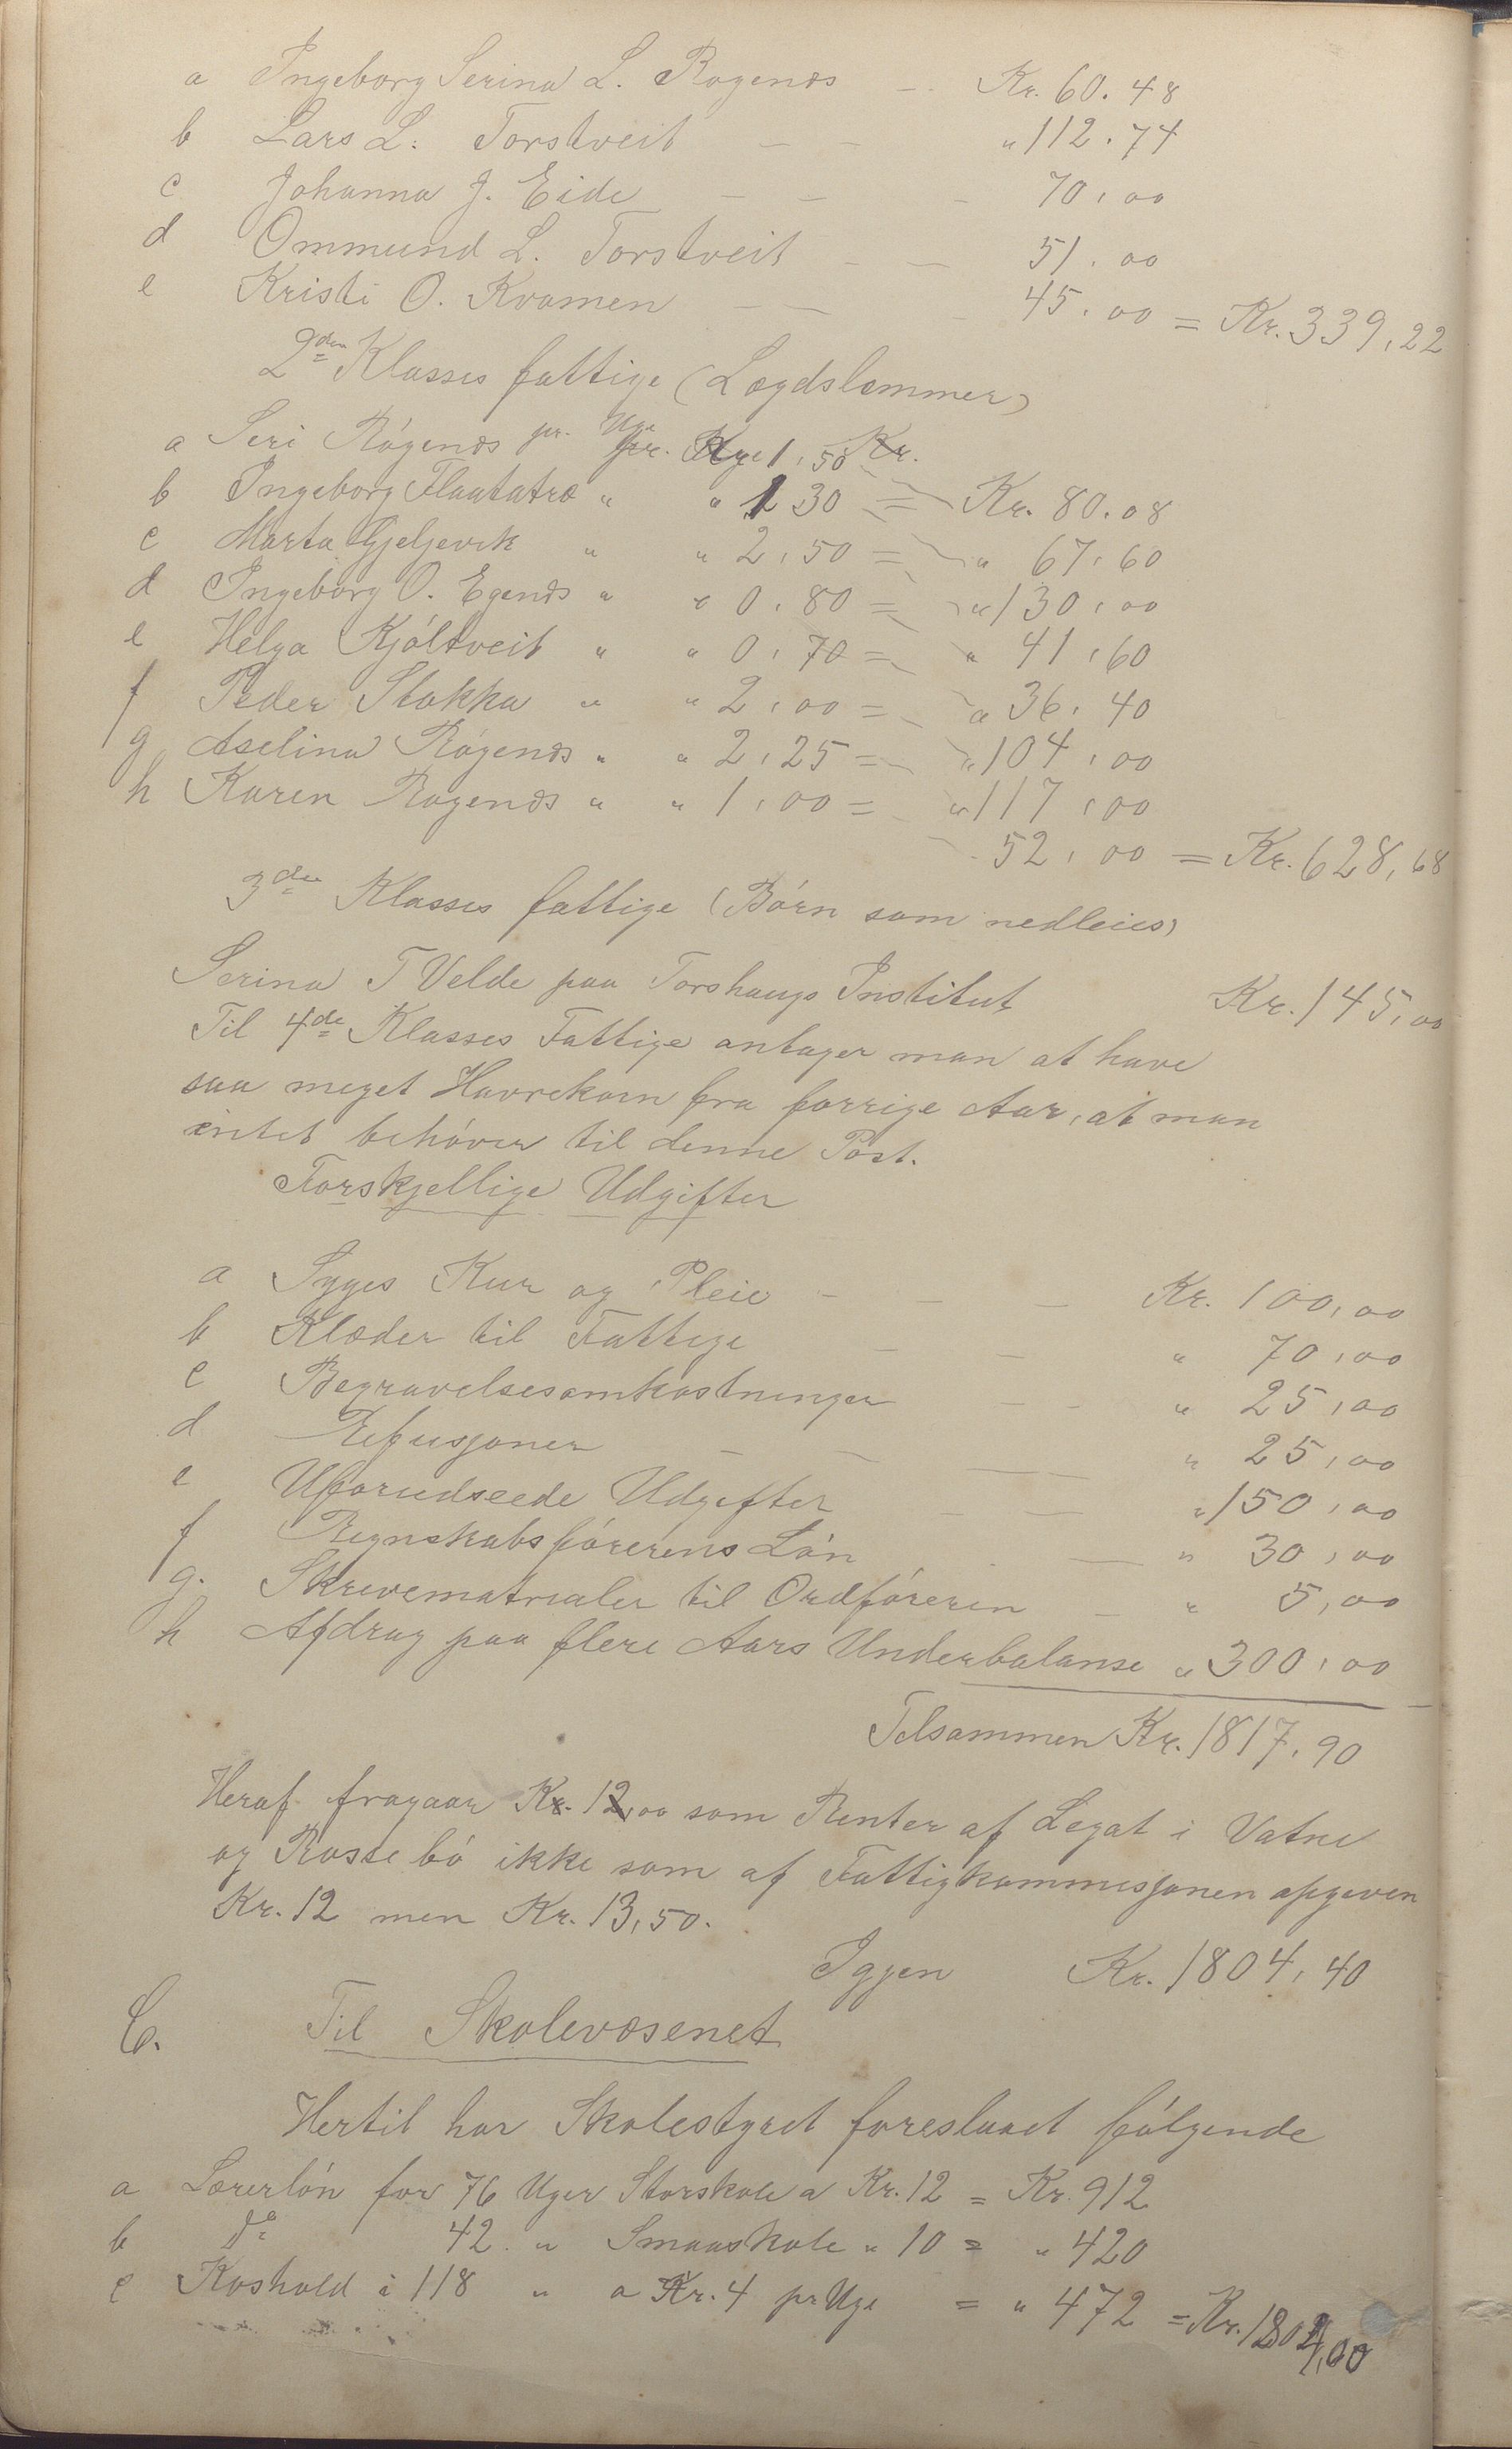 a Ingeborg Serina L. Rogenæs - Kr. 60.48
b Lars L. Torstveit - - " 112.74
c Johanna J. Eide - - - 70,00
d Ommund L. Torstveit - - 51.00
e Kristi O. Kvamen - - - 45.00 = Kr. 339,22
2den Klasses fattige (Lægdslemmer)
a Seri Rógenæs pr. Uge 1,50 Kr.
b Ingeborg Flaatatræ " " 1 30 = Kr. 80.08
c Marta Gjeljevik " " 2,50 = " 67,60
d Ingeborg O. Egenæs " " 0,80 = " 130,00
e Helga Kjóltveit " " 0,70 = " 41,60
f Peder Stakka " " 2,00 = " 36,40
g Aselina Rógenæs " " 2,25 = " 104,00
h Karen Rogenæs " " 1,00 = " 117,00
52,00 = Kr. 628,68
3die Klasses fattige (Bórn som nedleies)
Serina T Velde paa Torshaugs Institut Kr. 145,00
Til 4de Klasses Fattige antager man at have
saa meget Havrekorn fra forrige Aar, at man
intet behóver til denne Post.
Forskjellige Udgifter
a Syges Kur og Pleie - - - Kr. 100,00
b Klæder til Fattige - - " 70,00
c Begravelsesomkostninger - - " 25,00
d Refusjoner - - - " 25,00
e Uforudseede Udgifter - - " 150,00
f Regnskabsfórerens Lón - - " 30,00
g. Skrivematrialer til Ordfóreren - " 5,00
h Afdrag paa flere Aars Underbalanse " 300,00
Tilsammen Kr. 1817,90
Heraf fragaar Kr. 12,00 som Renter af Legat i Vatne
og Rossebó ikke som af Fattigkommisjonen opgiven
Kr. 12 men Kr. 13,50.
Igjen Kr. 1804,40
C. Til Skolevæsenet
Hertil har Skolestyret foreslaaet fólgende
a Lærerlón for 76 Uger Storskole a Kr. 12 = Kr. 912
b do 42 " Smaaskole " 10 = " 420
c Koshold i 118 " a Kr. 4 pr Uge = " 472 = Kr. 1804,00